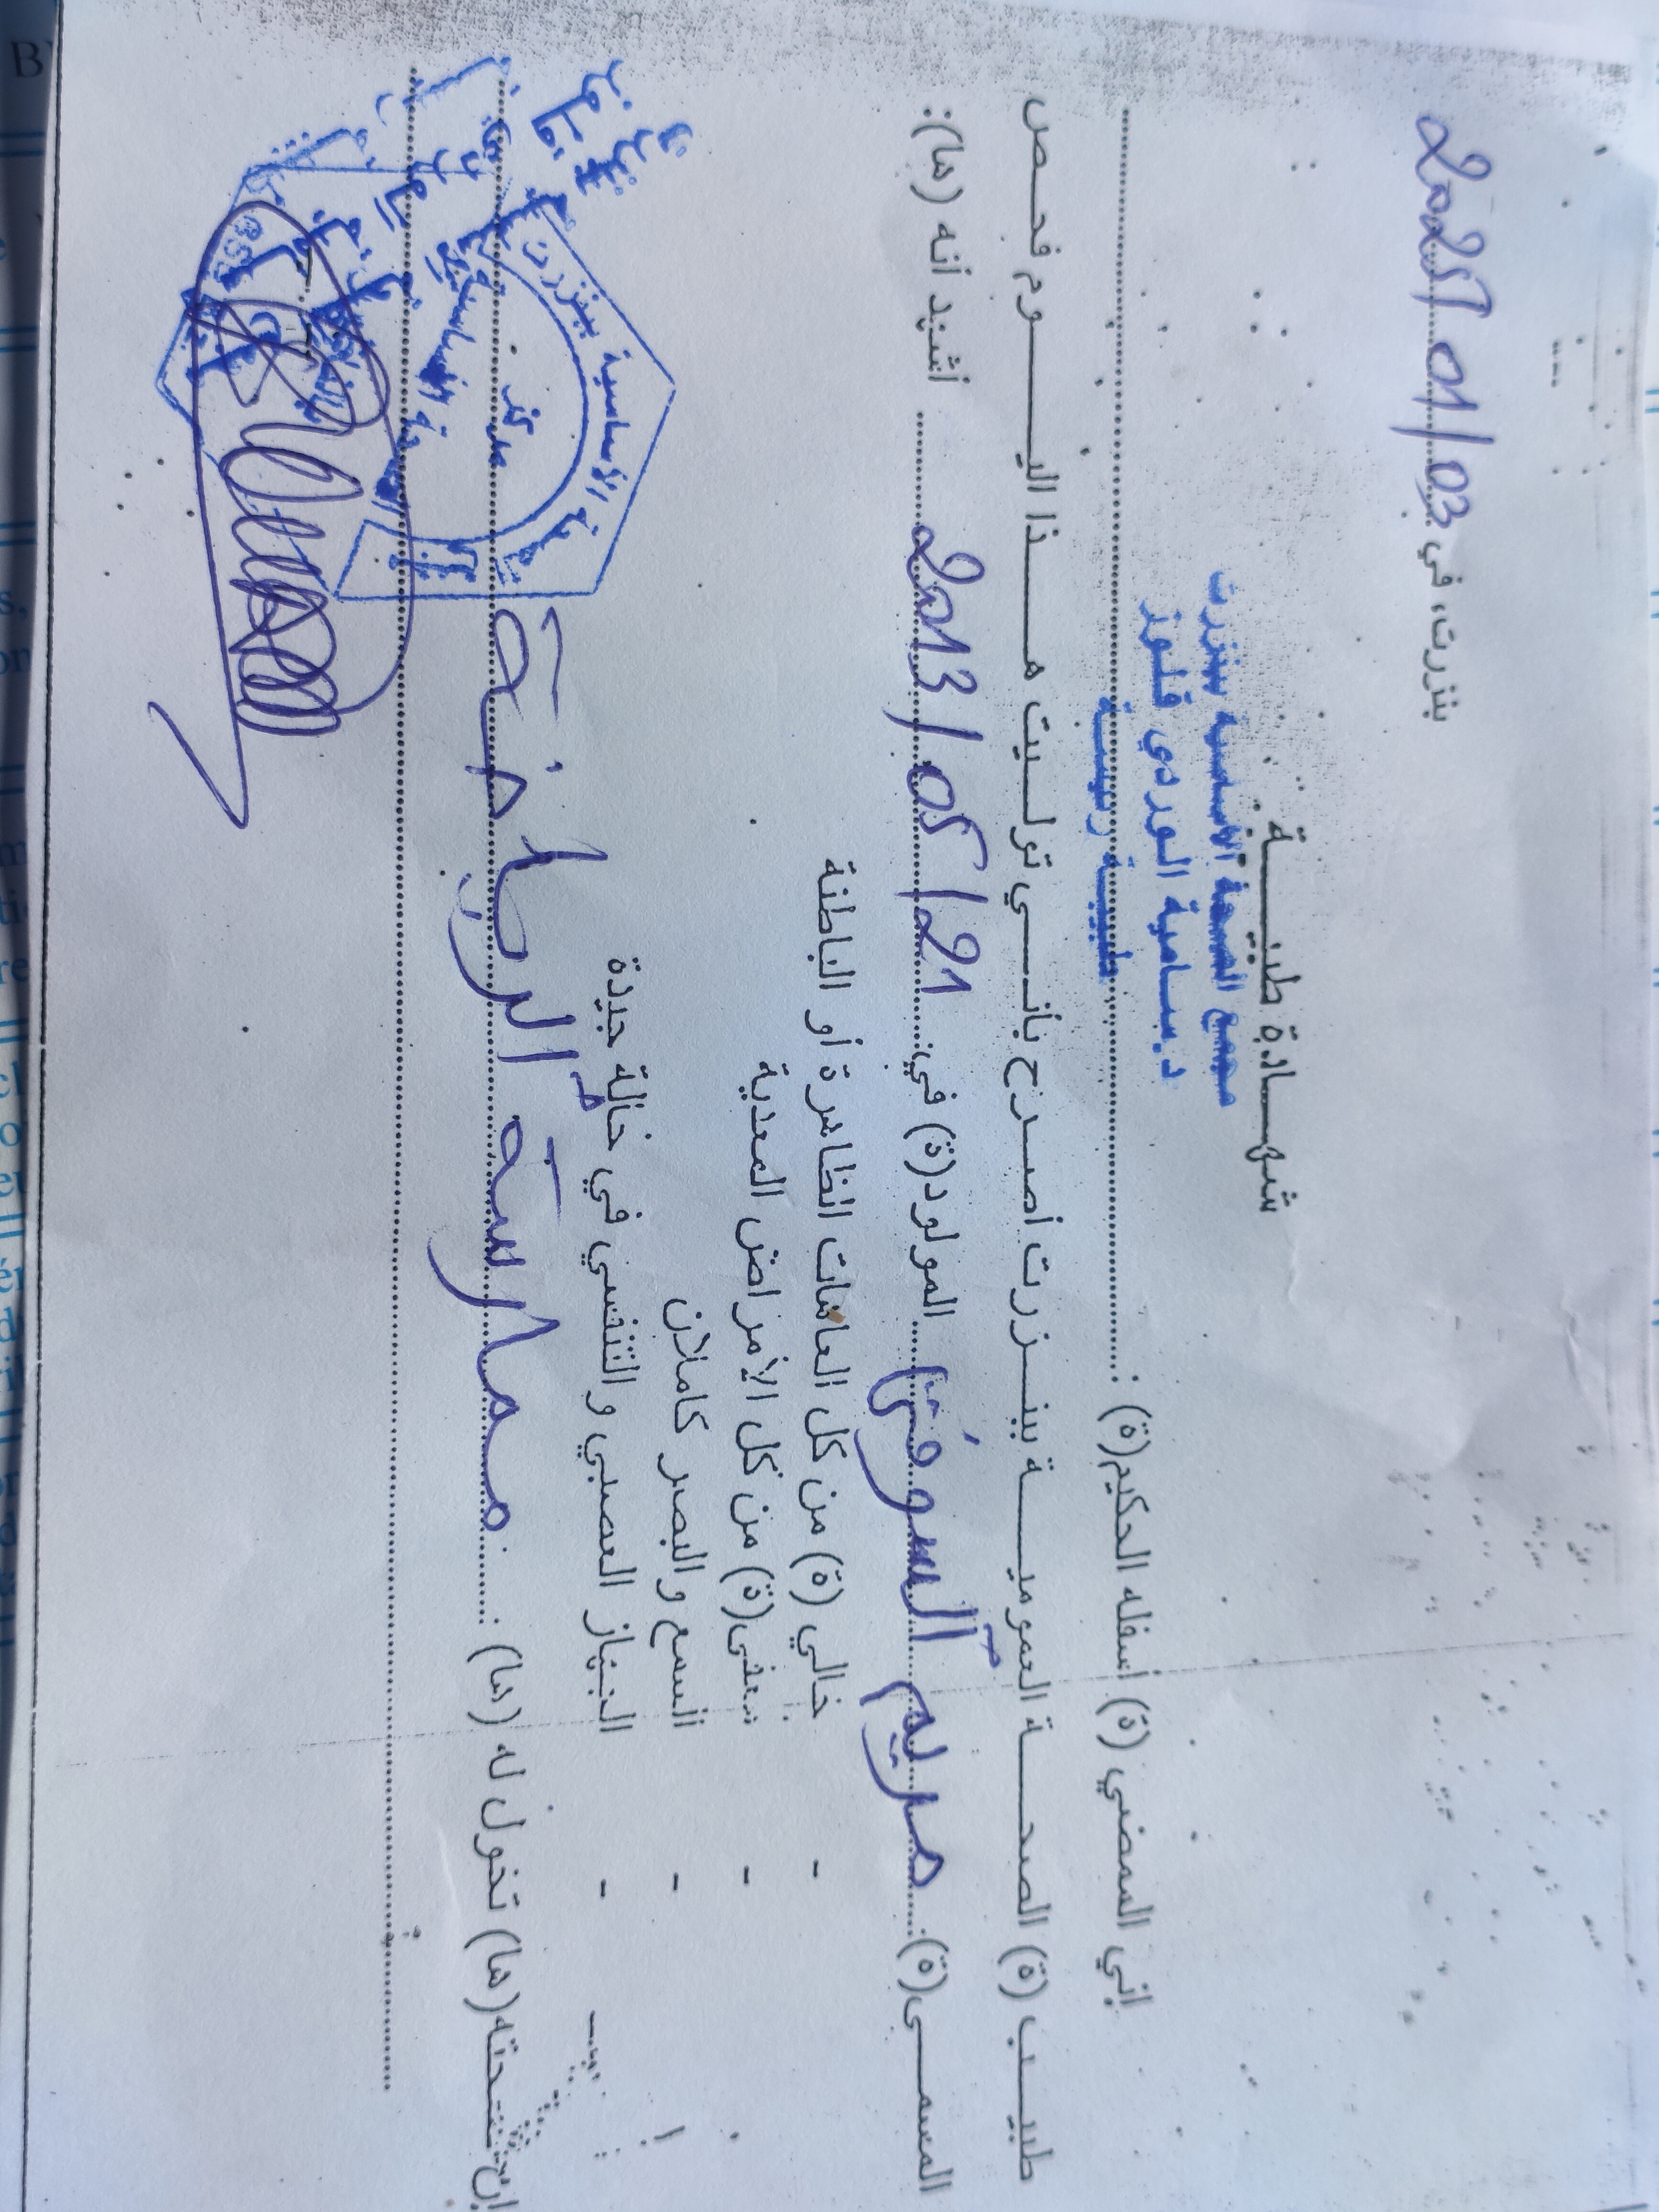 بنزرت، في 2025/01/03
شهـــادة طبيـــة
مجمع الصحة الأساسية ببنزرت
د. سامية الوردي قلوز
طبيبة رئيسة
إني الممضي (ة) أسفله الحكيم(ة) :
طبيـــب (ة) الصحـــة العموميـــة ببنـــزرت أصـرح بأنـــي تولـــيت هـــذا اليـــوم فحـــص
المسمـــى(ة): مريم السوفي المولود(ة) في 2013/05/21 أشهد أنه (ها):
- خالي (ة) من كل العاهات الظاهرة أو الباطنة
- معفى(ة) من كل الأمراض المعدية
- السمع والبصر كاملان
- الجهاز العصبي والتنفسي في حالة جيدة
إن صحته(ها) تخول له (ها) : ممارسة الرياضة
الأساسية ببنزرت